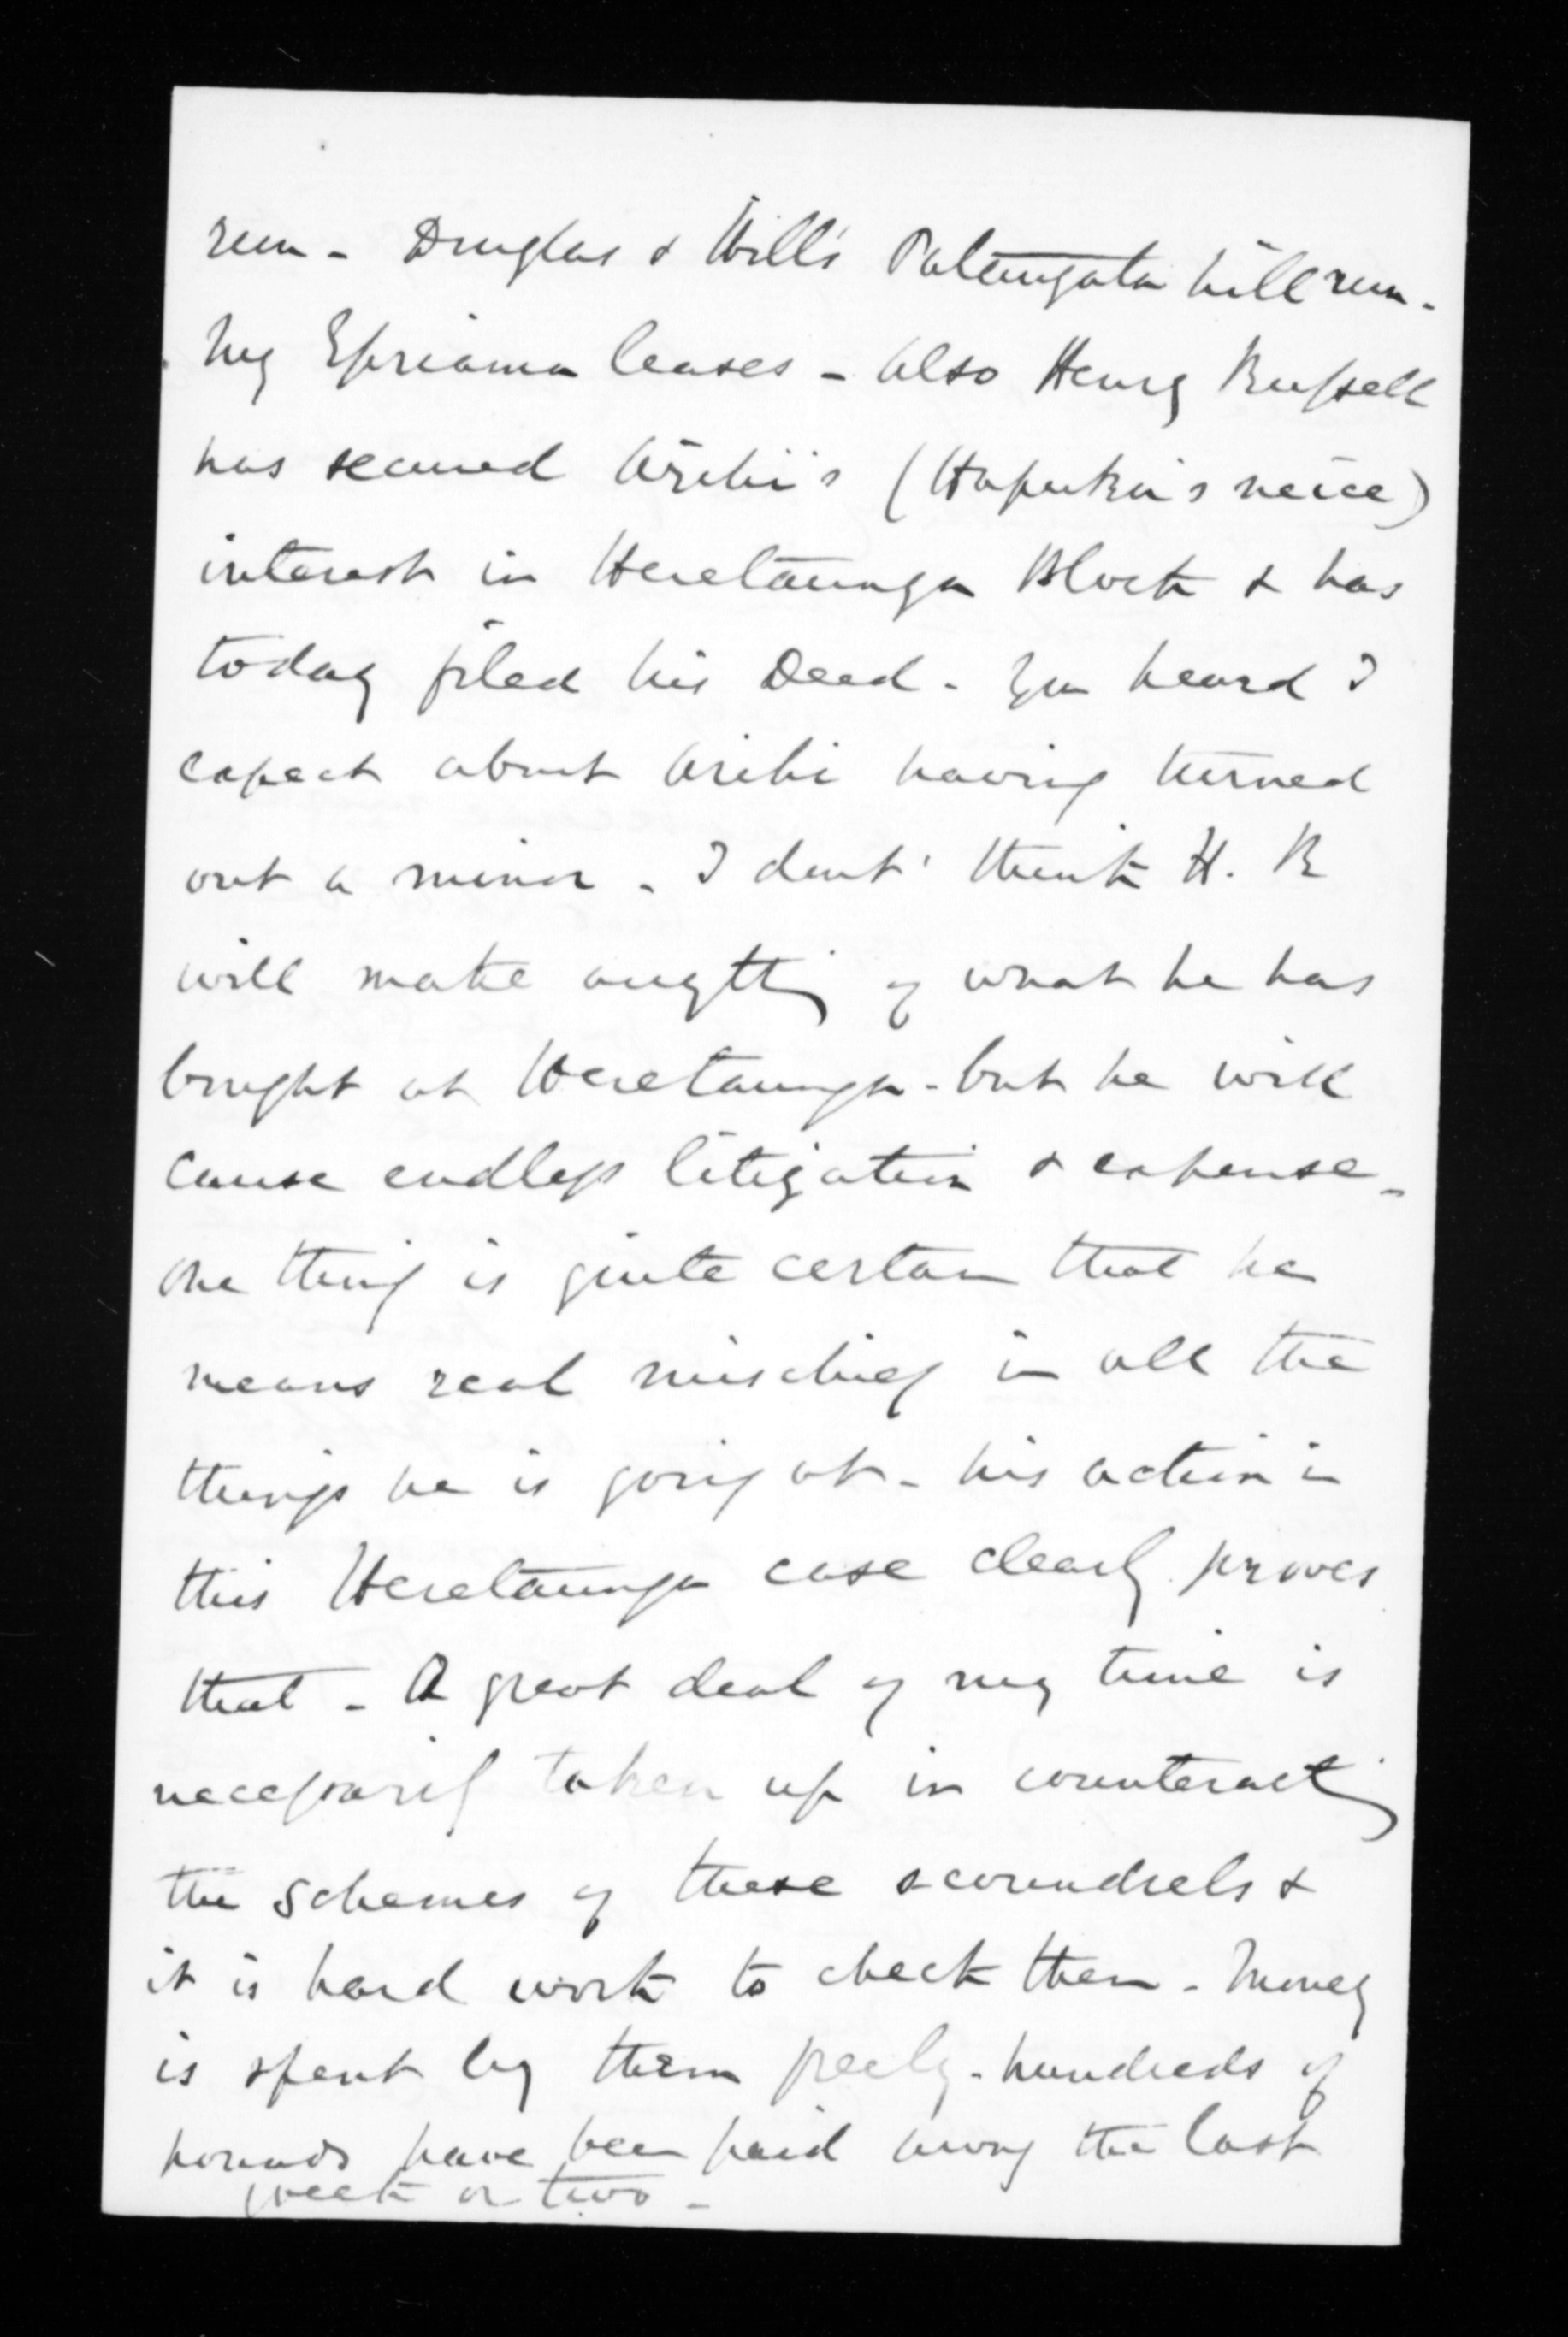 run - Douglas & Hill's Patangata hill run -
my Epriama leases - also Henry Russell
has secured Arihi's (Hapuku's neice)
interest in Heretaunga Block & has
today filed his Deed - You heard I
expect about Arihi having turned
out a minor - I dont' think H. R
will make anything of what he has
bought at Heretaunga - but he will
cause endless litigation & expense -
one thing is quite certain that he
means real mischief in all the
things he is going at - his action in
this Heretaunga case clearly proves
that - A great deal of my time is
necessarily taken up in counteracting
the schemes of these scoundrels &
it is hard work to check them - Money
is spent by them freely - hundreds of
pounds have been paid away the last
week or two -